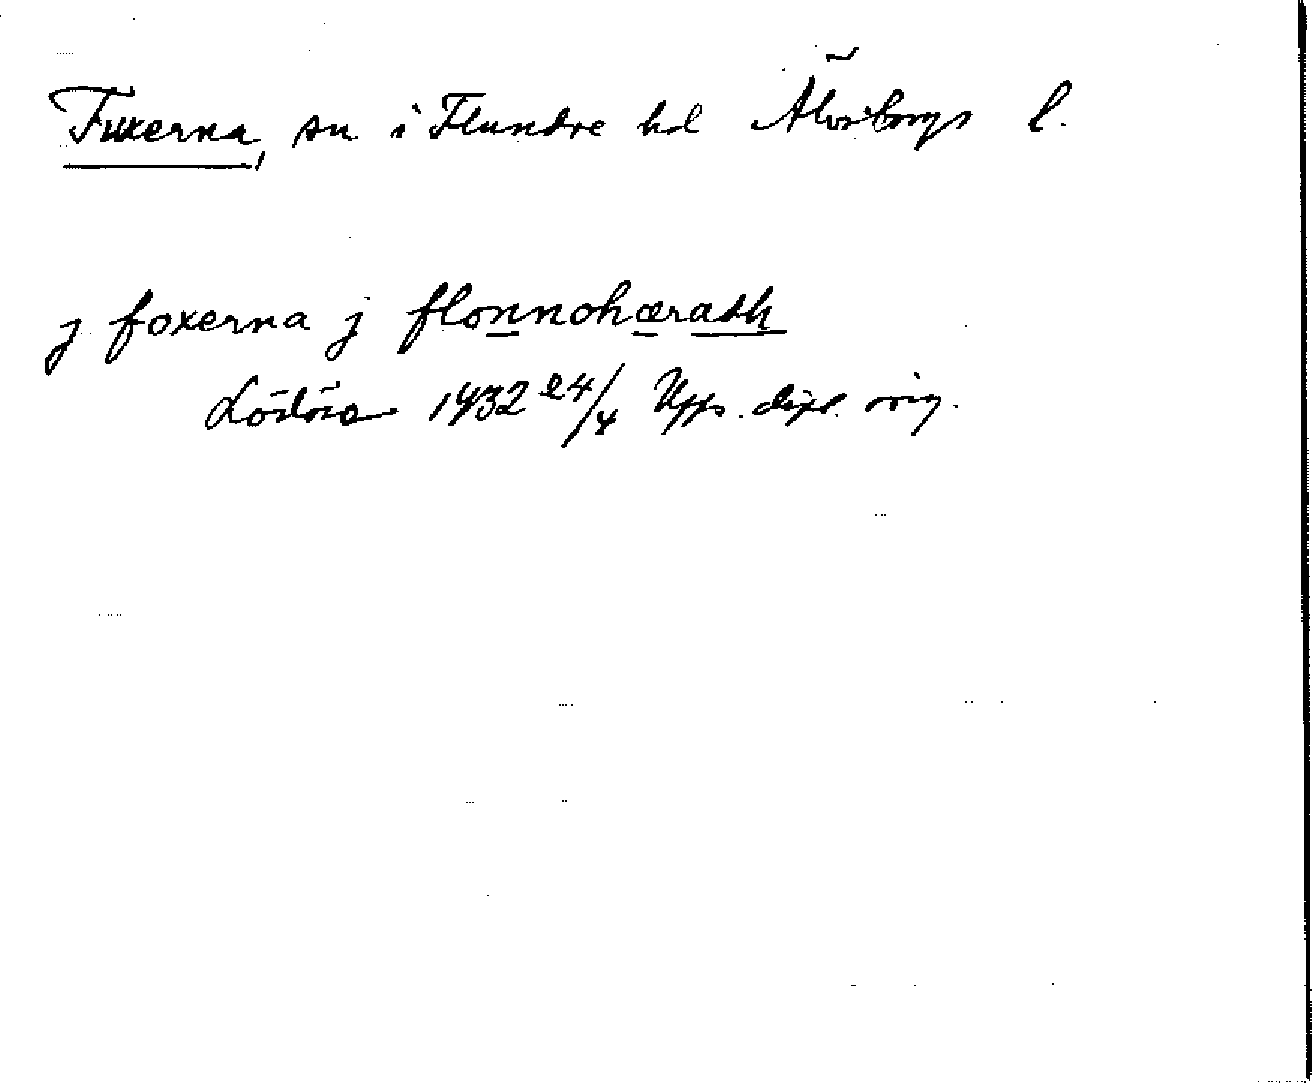 Fuxerna, sn i Flundre hd Älvsborgs l.
j foxerna j flonnohæradh
Lödösa 1432 24/4 Upps. dipl. orig.